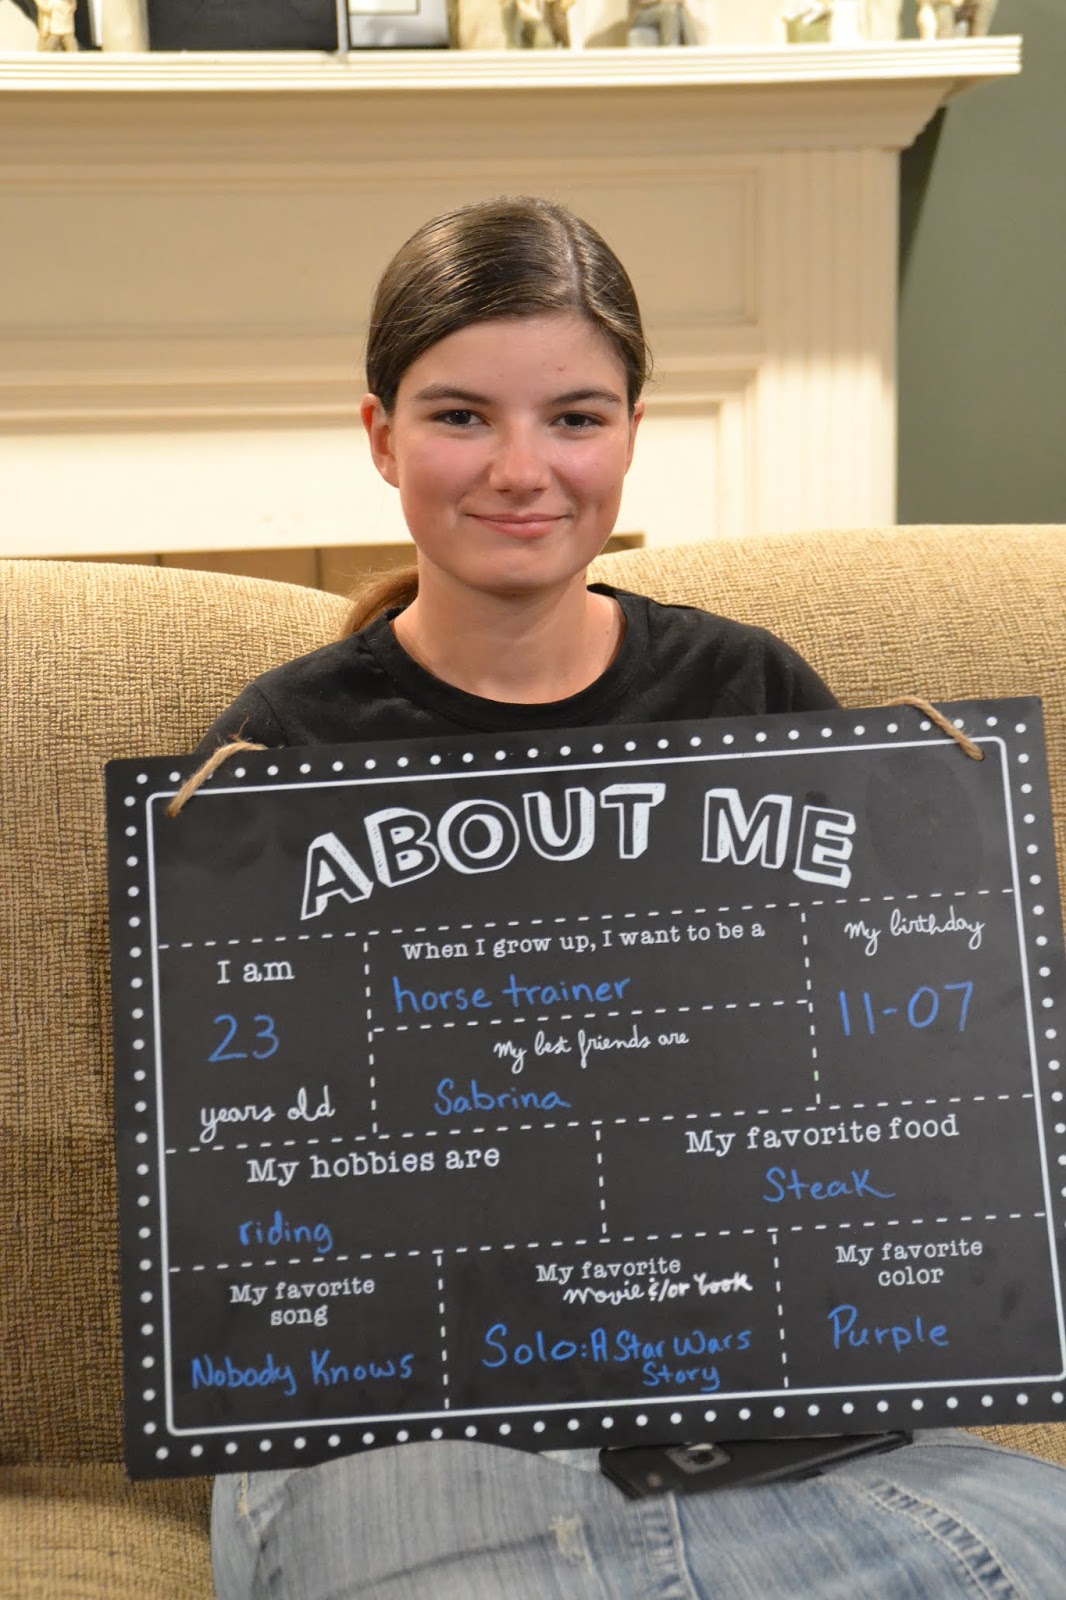 ABOUT ME
I am
23
years old
When I grow up, I want to be a
horse trainer
My best friends are
Sabrina
My birthday
11-07
My hobbies are
riding
My favorite food
Steak
My favorite
song
Nobody Knows
My favorite
movie &/or book
Solo: A Star Wars
Story
My favorite
color
Purple